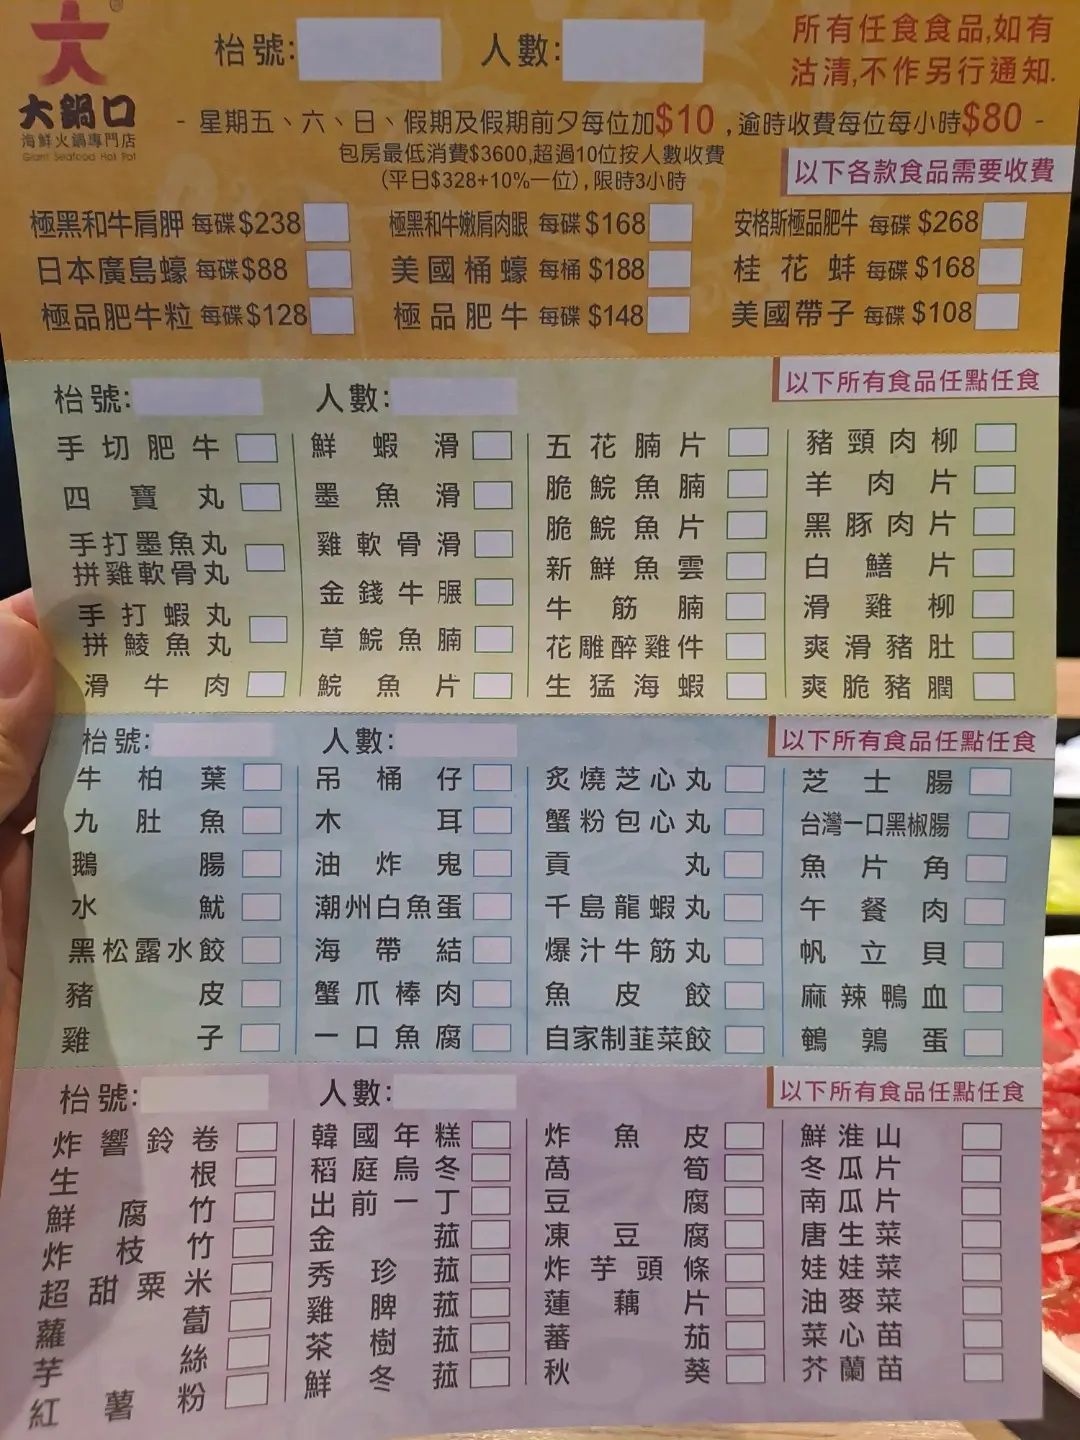 大鍋口
海鮮火鍋專門店
Giant Seafood Hot Pot
枱號:
人數:
所有任食食品,如有
沽清,不作另行通知.
- 星期五、六、日、假期及假期前夕每位加$10 ,逾時收費每位每小時$80 -
包房最低消費$3600,超過10位按人數收費
(平日$328+10%一位) , 限時3小時
以下各款食品需要收費
極黑和牛肩胛 每碟 $238
極黑和牛嫩肩肉眼 每碟 $168
安格斯極品肥牛 每碟 $268
日本廣島蠔 每碟 $88
美國桶蠔 每桶 $188
桂花蚌 每碟 $168
極品肥牛粒 每碟 $128
極品肥牛 每碟 $148
美國帶子 每碟 $108
枱號:
人數:
以下所有食品任點任食
手切肥牛
四寶丸
手打墨魚丸
拼雞軟骨丸
手打蝦丸
拼鯪魚丸
滑牛肉
鮮蝦滑
墨魚滑
雞軟骨滑
金錢牛𦟌
草鯇魚腩
鯇魚片
五花腩片
脆鯇魚腩
脆鯇魚片
新鮮魚雲
牛筋腩
花雕醉雞件
生猛海蝦
豬頸肉柳
羊肉片
黑豚肉片
白鱔片
滑雞柳
爽滑豬肚
爽脆豬膶
枱號:
人數:
以下所有食品任點任食
牛柏葉
九肚魚
鵝腸
水魷
黑松露水餃
豬皮
雞子
吊桶仔
木耳
油炸鬼
潮州白魚蛋
海帶結
蟹爪棒肉
一口魚腐
炙燒芝心丸
蟹粉包心丸
貢丸
千島龍蝦丸
爆汁牛筋丸
魚皮餃
自家制韮菜餃
芝士腸
台灣一口黑椒腸
魚片角
午餐肉
帆立貝
麻辣鴨血
鵪鶉蛋
枱號:
人數:
以下所有食品任點任食
炸響鈴卷
生根
鮮腐竹
炸枝竹
超甜粟米
蘿蔔
芋絲
紅薯粉
韓國年糕
稻庭烏冬
出前一丁
金菰
秀珍菰
雞脾菰
茶樹菰
鮮冬菰
炸魚皮
萵筍
豆腐
凍豆腐
炸芋頭條
蓮藕片
蕃茄
秋葵
鮮淮山
冬瓜片
南瓜片
唐生菜
娃娃菜
油麥菜
菜心苗
芥蘭苗